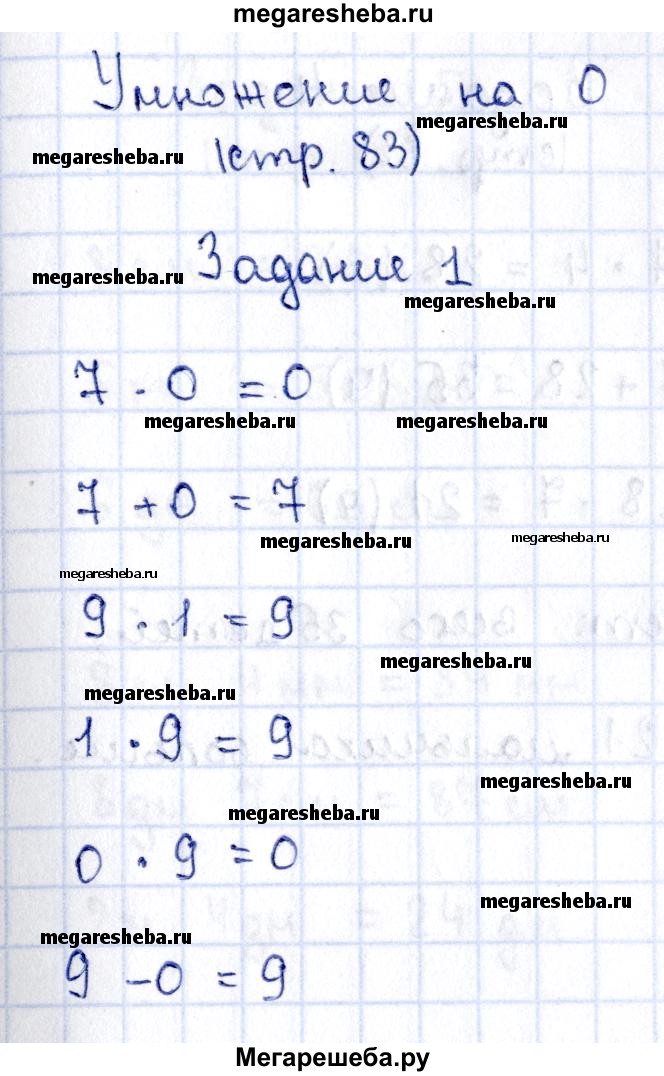 megaresheba.ru
Умножение на 0
megaresheba.ru
megaresheba.ru
(стр. 83)
Задание 1
megaresheba.ru
megaresheba.ru
7 · 0 = 0
megaresheba.ru megaresheba.ru
7 + 0 = 7
megaresheba.ru megaresheba.ru
megaresheba.ru
9 · 1 = 9
megaresheba.ru
megaresheba.ru
1 · 9 = 9
megaresheba.ru
megaresheba.ru
0 · 9 = 0
megaresheba.ru
megaresheba.ru
9 - 0 = 9
Мегарешеба.ру